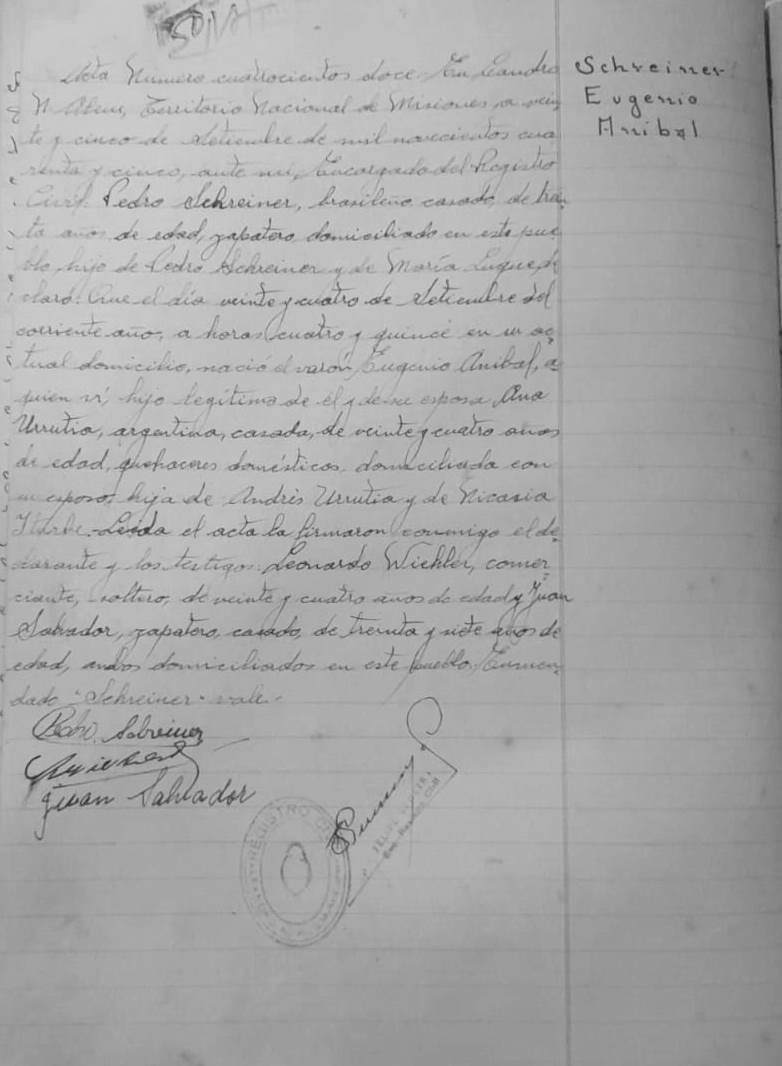 Acta Numero cuatrocientos doce. En Leandro
N. Alem, Territorio Nacional de Misiones, a vein
te y cinco de Setiembre de mil novecientos cua
renta y cinco, ante mí, Encargado del Registro
Civil Pedro Schreiner, brasileño, casado, de trein
ta años de edad, zapatero, domiciliado en este pue
blo, hijo de Pedro Schreiner y de María Luque, de
claró: Que el día veinte y cuatro de Setiembre del
corriente año, a horas cuatro y quince en su ac
tual domicilio, nació el varón Eugenio Anibal, a
quien ví hijo legítimo de él y de su esposa Ana
Urrutia, argentina, casada, de veinte y cuatro años
de edad, quehaceres domésticos, domiciliada con
su esposo, hija de Andrés Urrutia y de Nicasia
Leida el acta la firmaron conmigo el de
clarante y los testigos: Leonardo Wichler, comer
ciante, soltero, de veinte y cuatro años de edad y Juan
Salvador, zapatero, casado, de treinta y siete años de
edad, ambos domiciliados en este pueblo. Enmen
dado "Schreiner" vale.
Schreiner
Eugenio
Anibal
Pedro Schreiner
Juan Salvador
REGISTRO